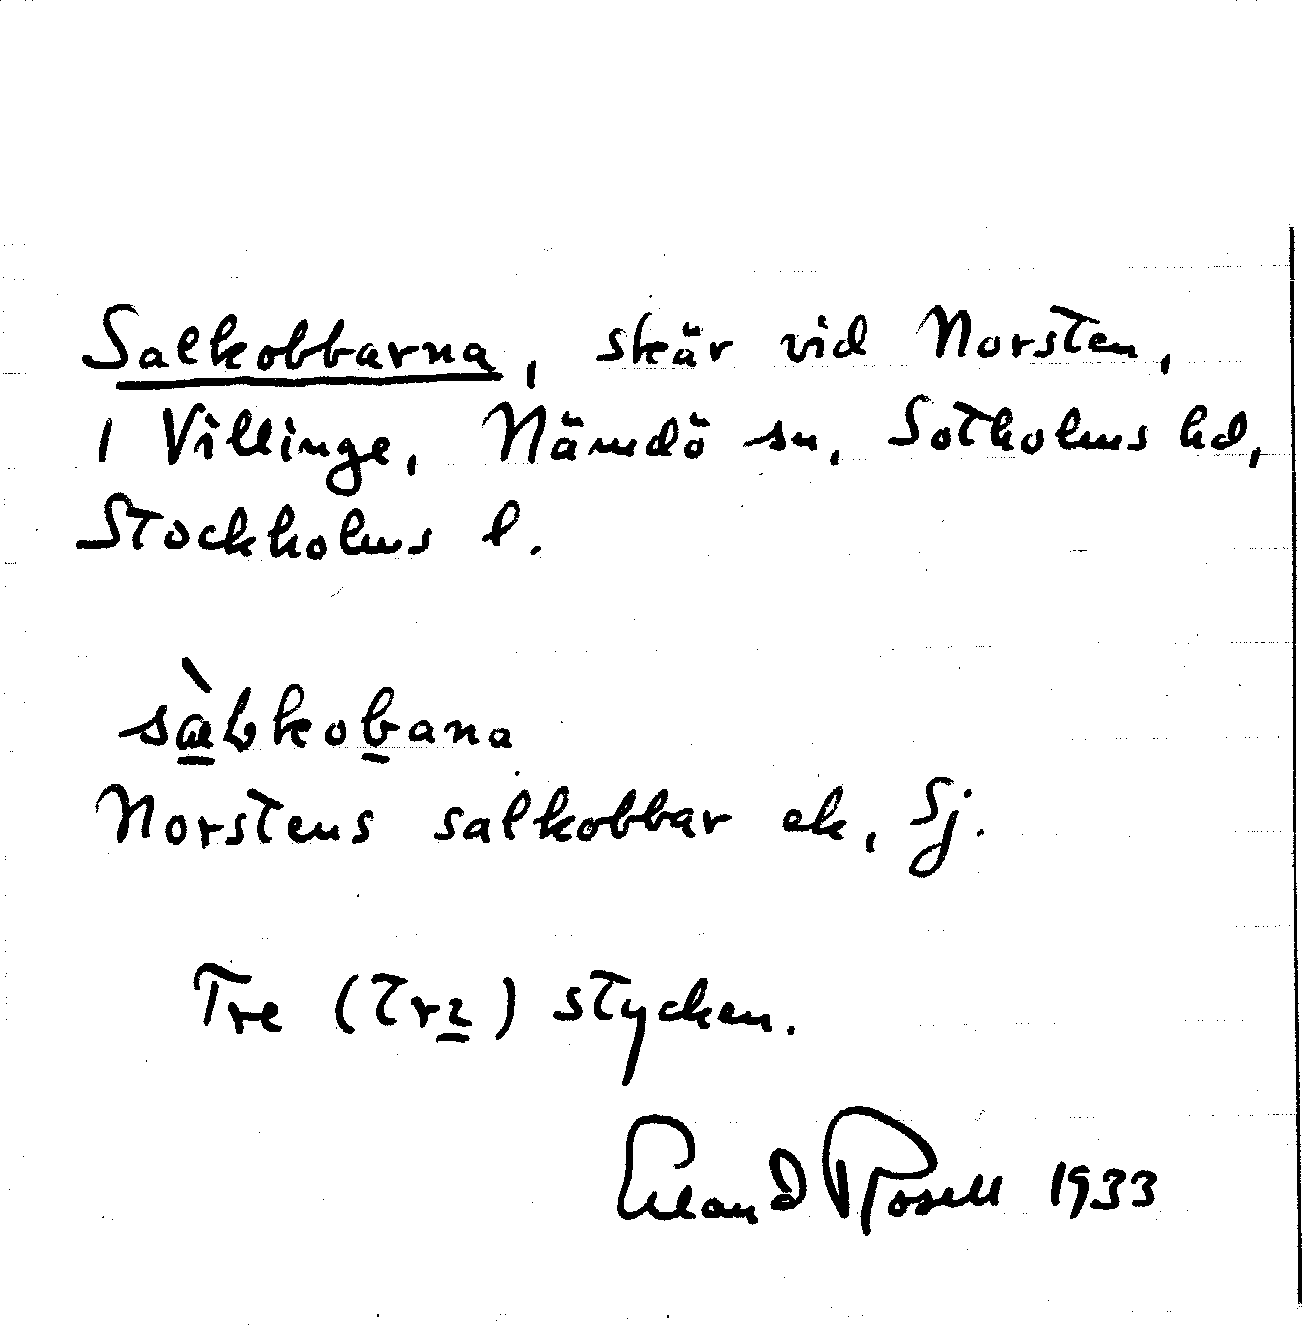 Salkobbarna, skär vid Norsten,
i Villinge, Nämdö sn, Sotholms hd,
Stockholms l.
sàlkobana
Norstens salkobbar ek, Sj.
Tre (trɩ) stycken.
Erland Rosell 1933